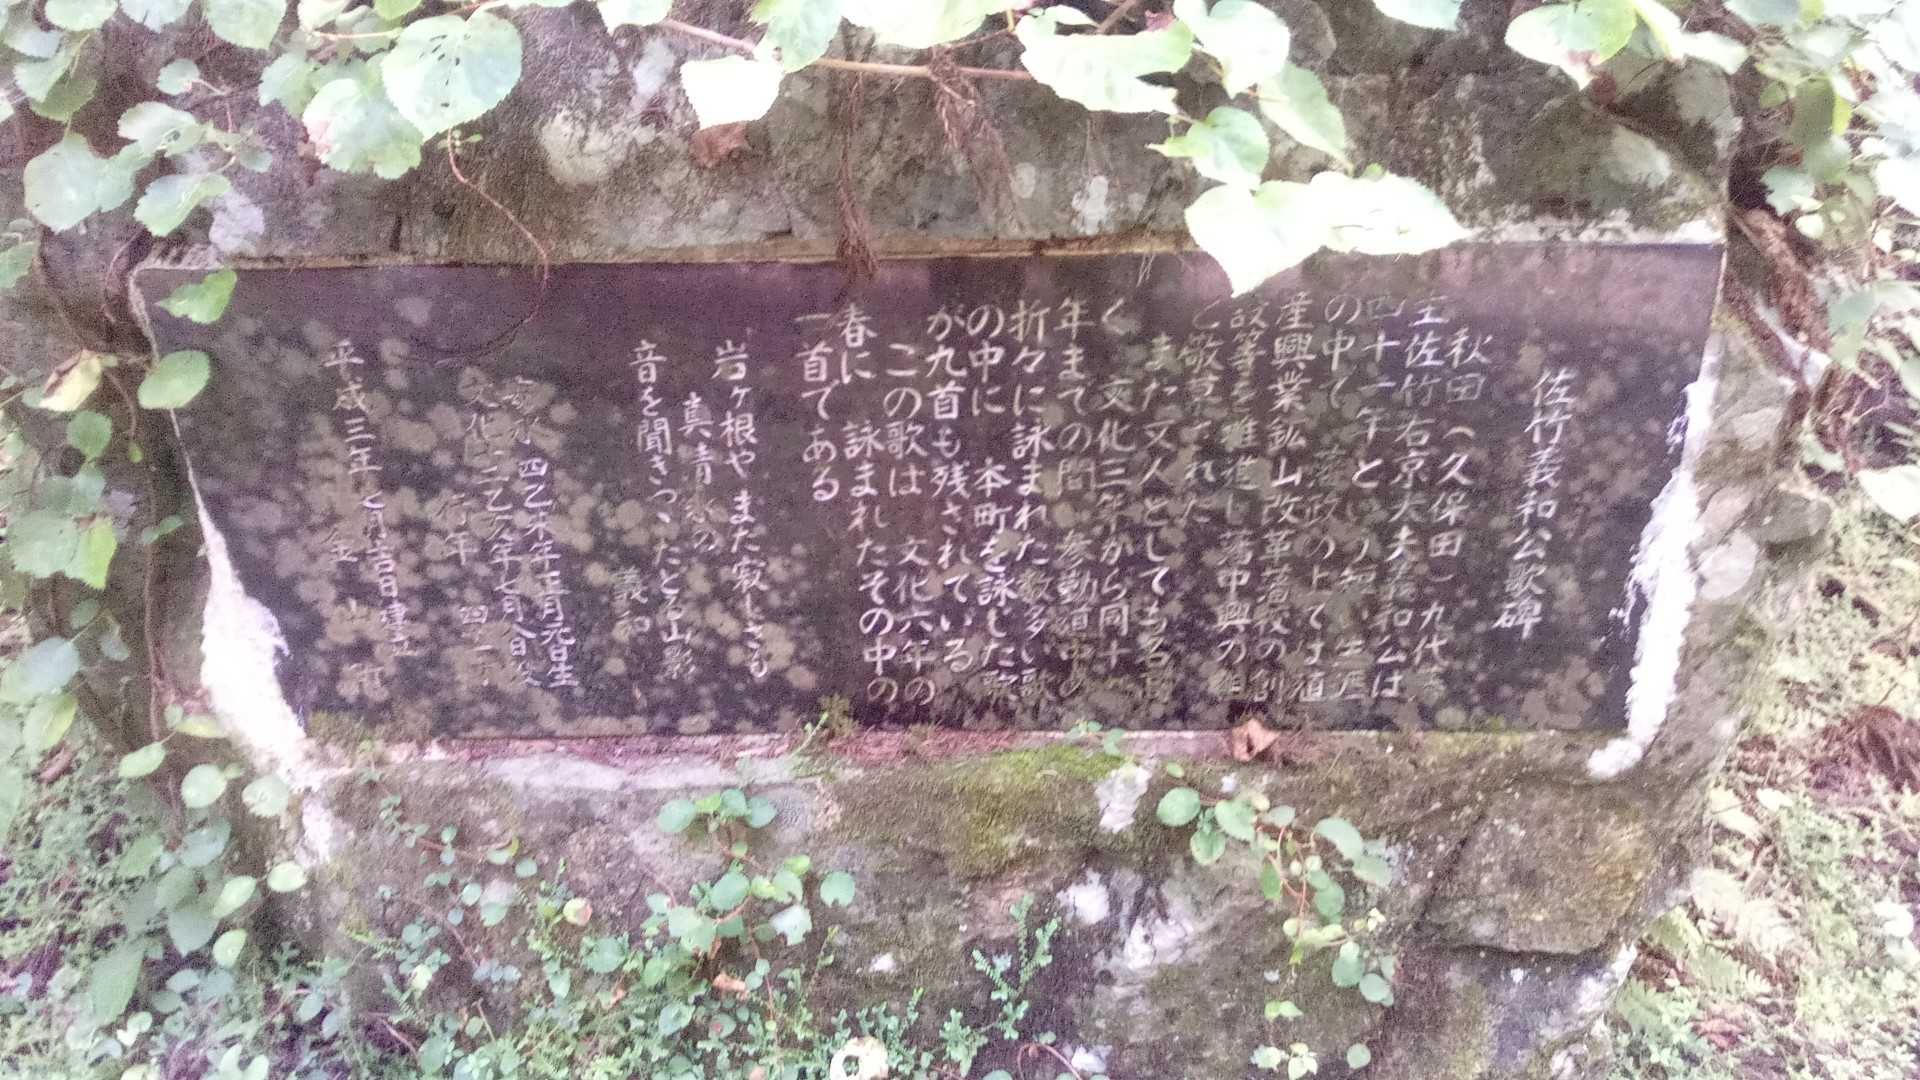 佐竹義和公歌碑
秋田（久保田）九代藩
主佐竹右京大夫義和公は
四十一年という短い生涯
の中で 藩政の上ては殖
産興業鉱山改革藩校の創
設等を推進し藩中興の祖
と敬慕された
また文人としても名高
く 文化三年から同十
年まての間 参勤道中の
折々に詠まれた数多い歌
の中に 本町を詠した歌
が九首も残されている
この歌は 文化六年の
春に 詠まれたその中の
一首である
岩ヶ根や また寂しさも
真清水の
音を聞きつゝ たとる山影
義和
安永四乙未年正月元日生
文化十二乙亥年七月八日没
行年 四十一才
平成三年七月吉日建立
金山町